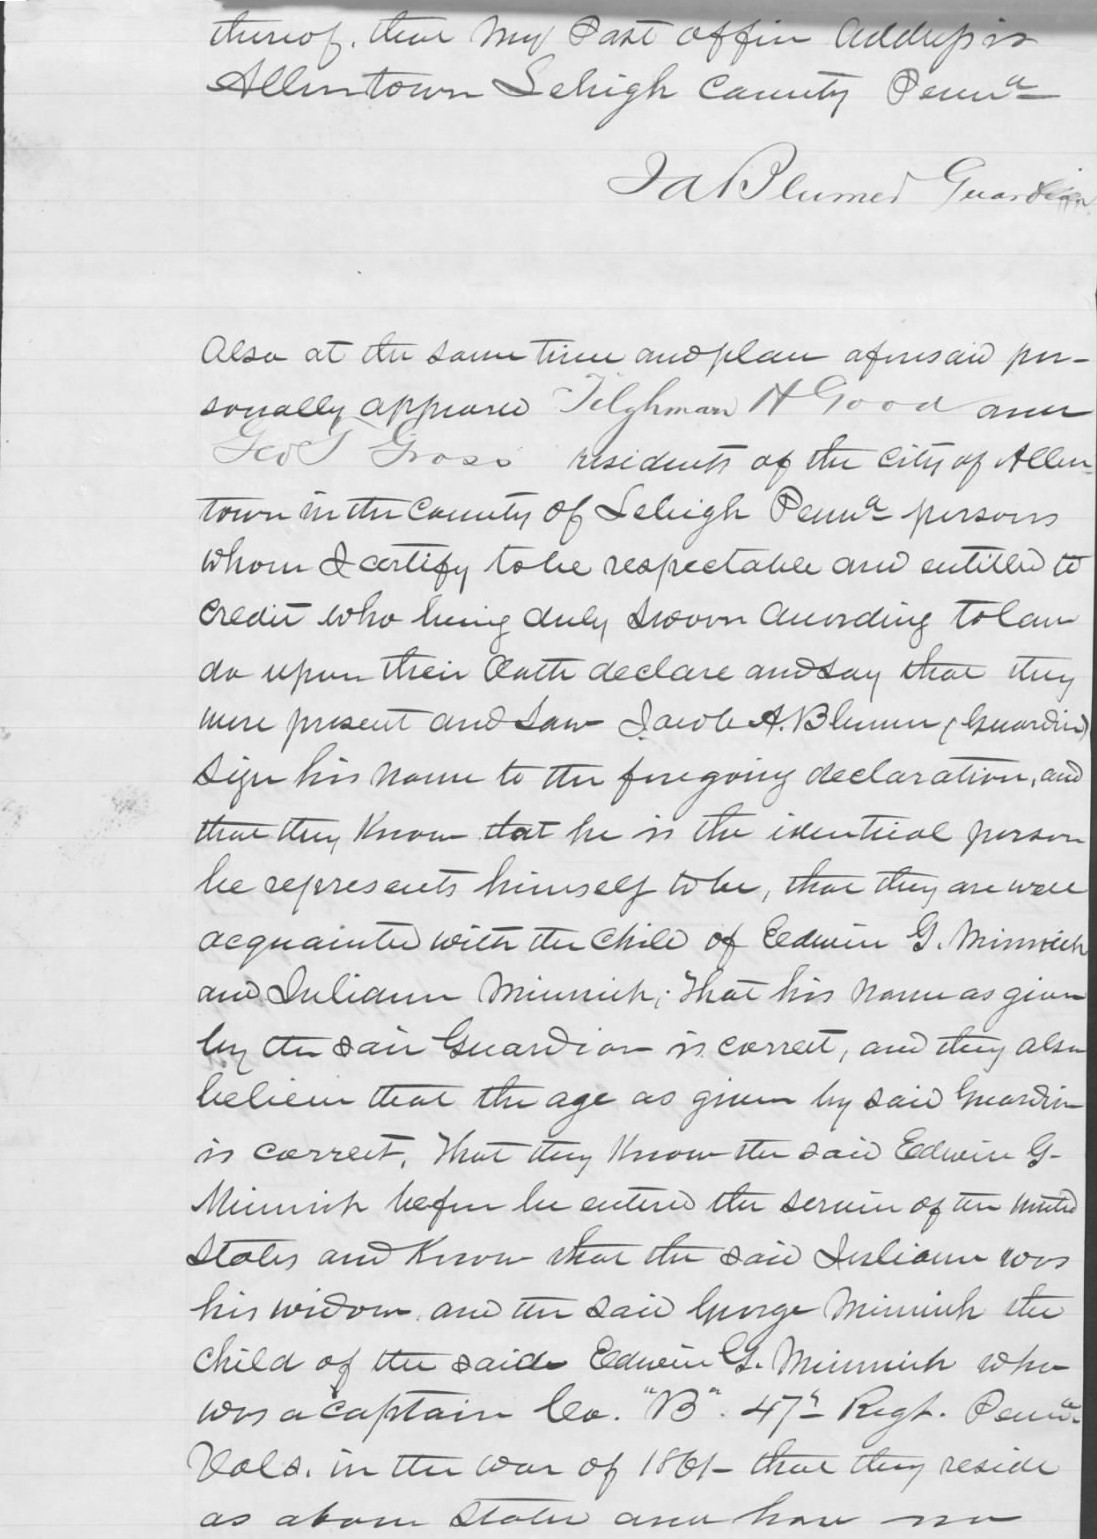 thereof, that my Post office address is
Allentown Lehigh County Penna
J A Blumer Guardian
Also at the same time and place aforesaid per-
sonally appeared Tilghman H Good and
Geo T Gross residents of the City of Allen-
town in the County of Lehigh Penna persons
whom I certify to be respectable and entitled to
credit who being duly sworn according to law
do upon their oath declare and say that they
were present and saw Jacob A. Blumer (Guardian)
sign his name to the foregoing declaration, and
that they know that he is the identical person
he represents himself to be, that they are well
acquainted with the child of Edwin G. Minnich
and Juliann Minnich; that his name as given
by the said Guardian is correct, and they also
believe that the age as given by said Guardian
is correct, that they know the said Edwin G.
Minnich before he entered the service of the united
States and know that the said Juliann was
his widow and the said George Minnich the
child of the said Edwin G. Minnich who
was a captain Co. "B". 47th Regt. Penna
Vols. in the war of 1861 - that they reside
as above stated and have no